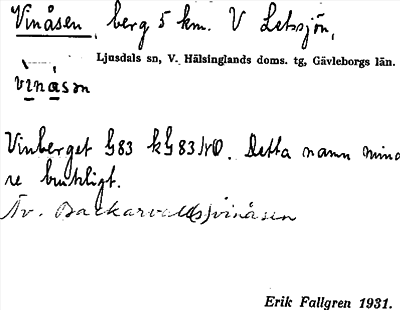 Vinåsen, berg 5 km. V Letssjön,
Ljusdals sn, V. Hälsinglands doms. tg, Gävleborgs län.
vìnåsən
Vinberget G83 kG83NO. Detta namn mind
re brukligt.
Äv. Backarvall(s)vinåsen
Erik Fallgren 1931.